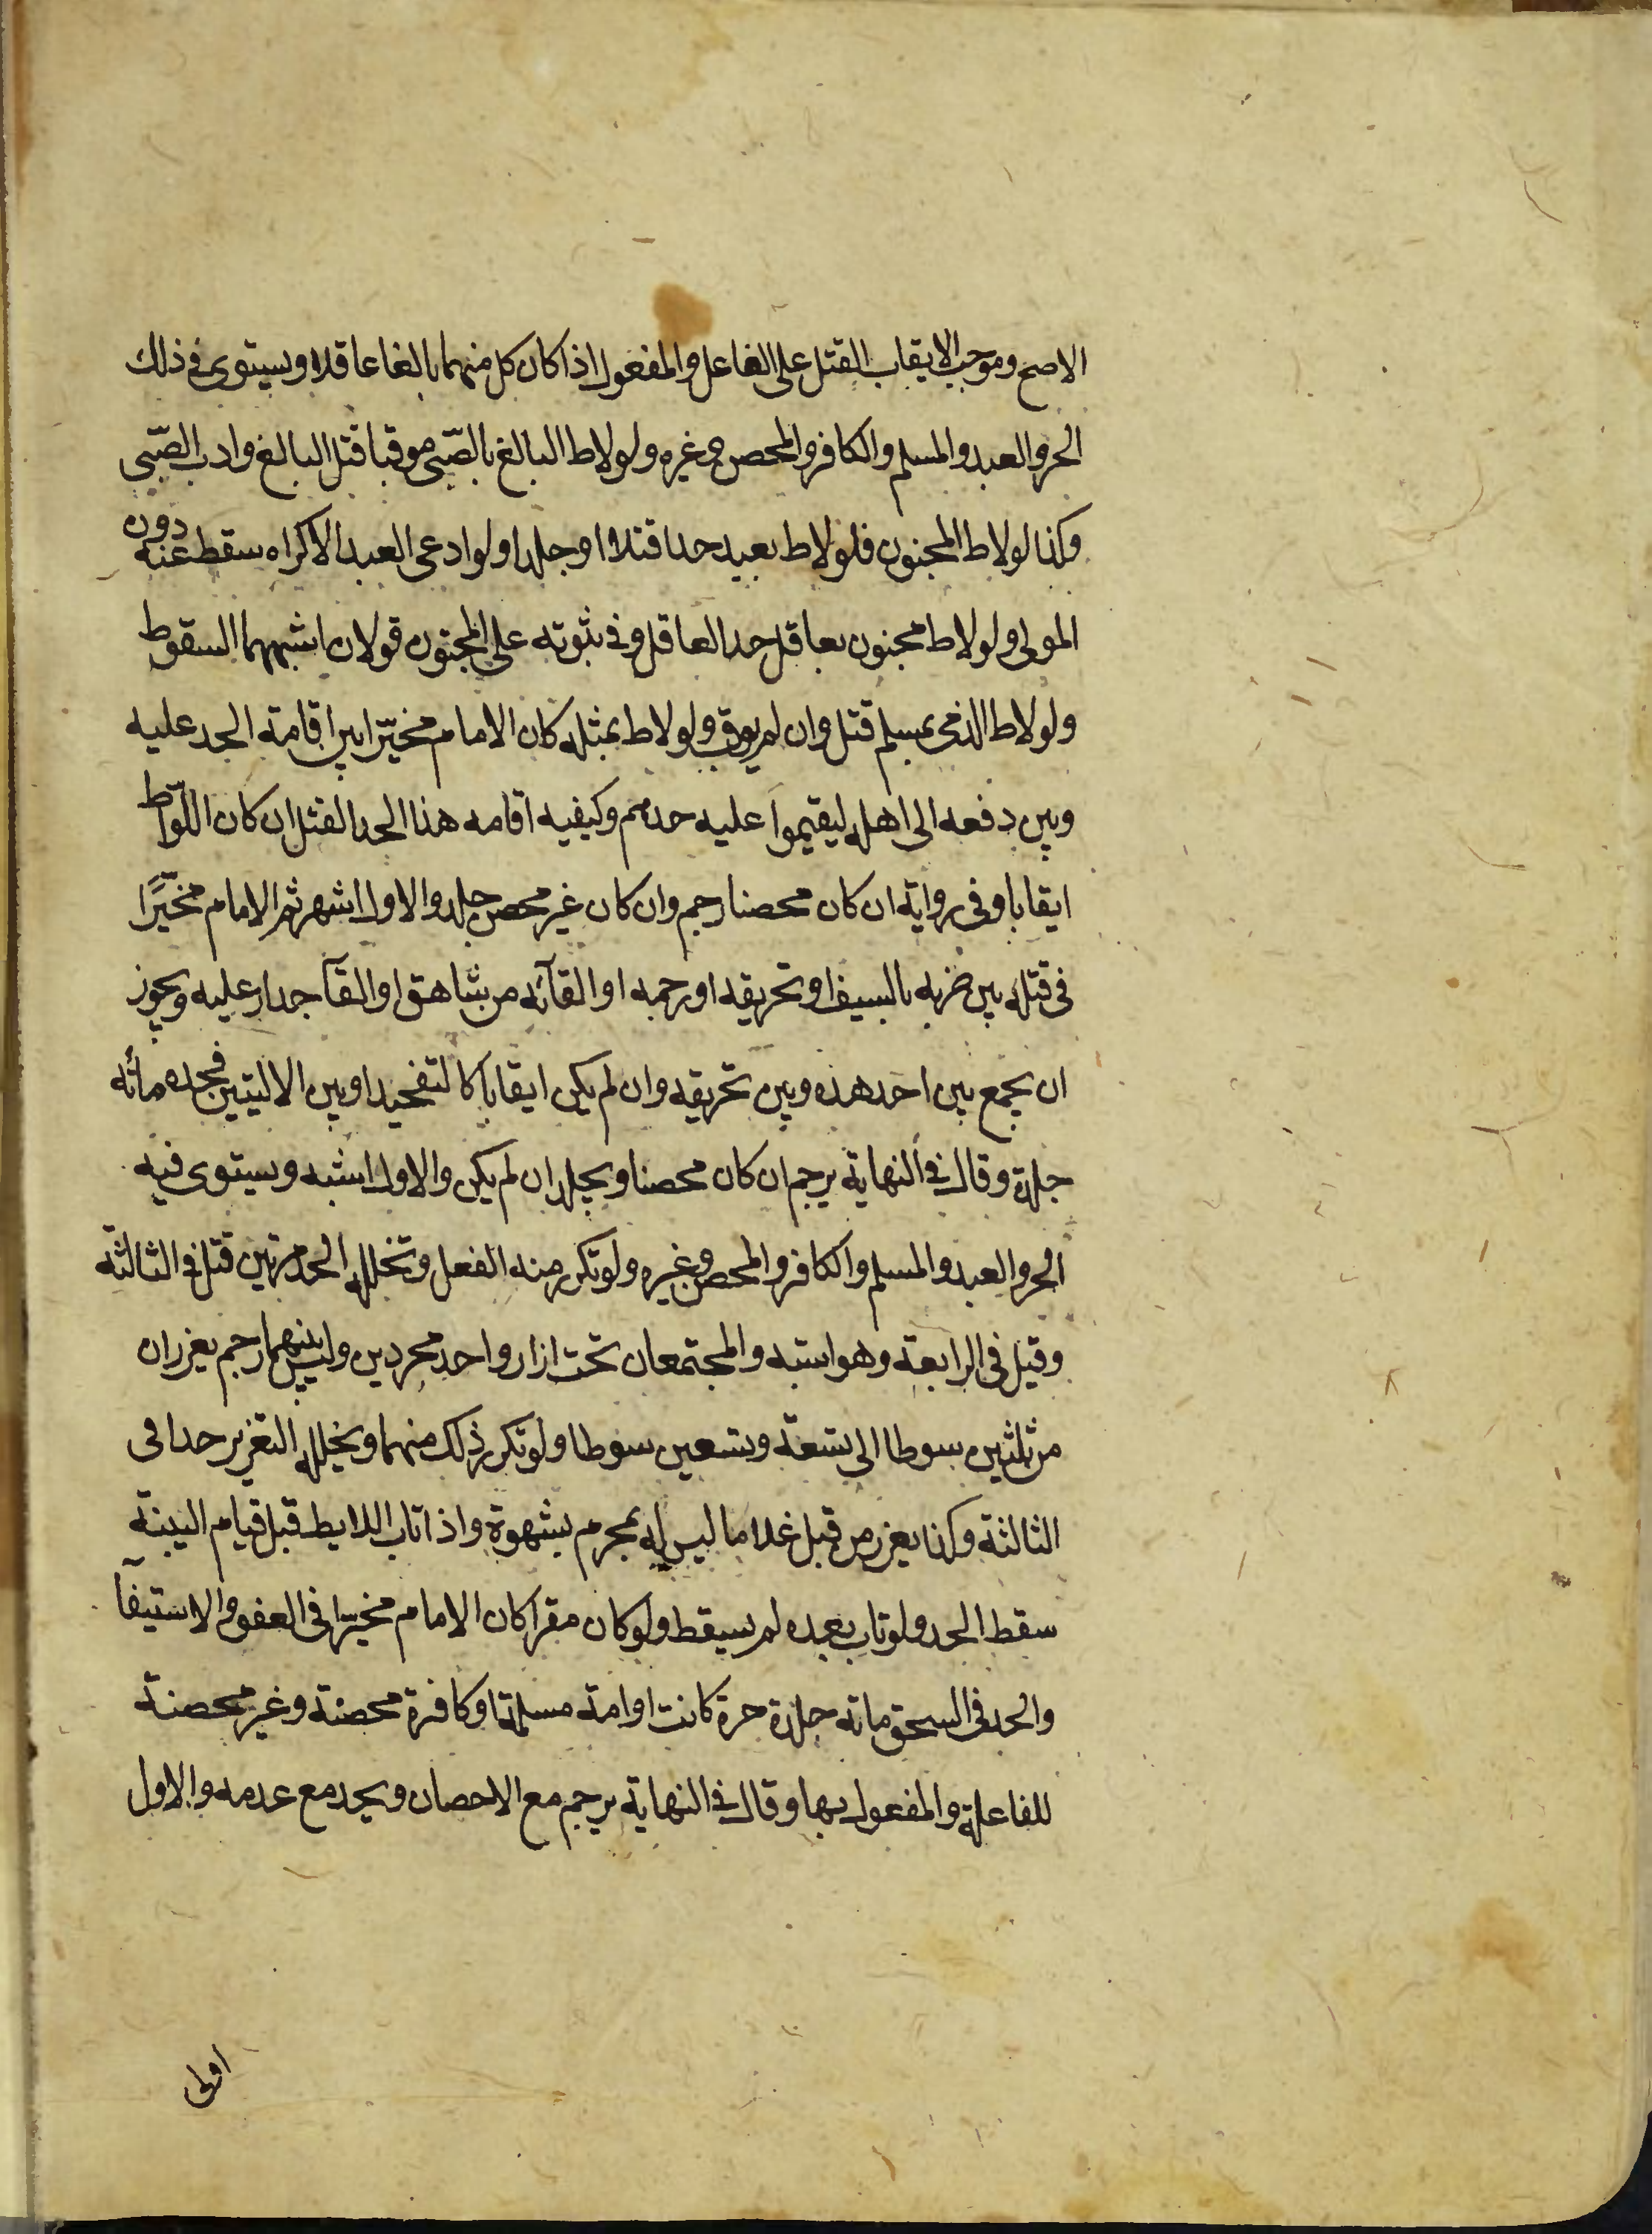 الاصح وموجب الايقاب القتل على الفاعل والمفعول اذا كان كل منهما بالغا عاقلا ويستوى فى ذلك
الحر والعبد والمسلم والكافر والمحصن وغيره ولو لاط البالغ بالصّبى موقبا قتل البالغ وادب الصّبى
وكذا لو لاط المجنون فلو لاط بعبد حدا قتلا او جلدا ولو ادعى العبد الاكراه سقط عنه دون
المولى ولو لاط مجنون بعاقل حد العاقل وفى ثبوته على المجنون قولان اشبههما السقوط
ولو لاط الذمى بمسلم قتل وان لم يوقب ولو لاط بمثله كان الامام مخيّرا بين اقامة الحد عليه
وبين دفعه الى اهله ليقيموا عليه حدهم وكيفيه اقامه هذا الحد القتل ان كان اللّواط
ايقابا وفى رواية ان كان محصنا رجم وان كان غير محصن جلد والاول اشهر ثم الامام مخيّرًا
فى قتله بين ضربه بالسيف او تحريقه او رجمه او القآئه من شاهق او القآ جدار عليه ويجوز
ان يجمع بين احد هذه وبين تحريقه وان لم يكن ايقابا كالتفخيذ او بين الاليتين فحده مائه
جلدة وقال فى النهاية يرجم ان كان محصنا ويجلد ان لم يكن والاول اشبه ويستوى فيه
الحر والعبد والمسلم والكافر والمحصن وغيره ولو تكرر منه الفعل وتخلله الحد مرتين قتل فى الثالثة
وقيل فى الرابعة وهو اشبه والمجتمعان تحت ازار واحد مجردين وليس بينهما رحم يعزران
من ثلثين سوطا الى تسعة وتسعين سوطا ولو تكرر ذلك منهما وتخلله التعزير حدا فى
الثالثة وكذا يعزر من قبل غلاما ليس له بمحرم بشهوة واذا تاب اللايط قبل قيام البينة
سقط الحد ولو تاب بعده لم يسقط ولو كان مقرا كان الامام مخيّرا فى العفو والاستيفآ
والحد فى السحق مائه جلدة حرة كانت او امة مسلمة او كافرة محصنة وغير محصنة
للفاعلة والمفعول بها وقال فى النهاية يرجم مع الاحصان ويحد مع عدمه والاول
اولى